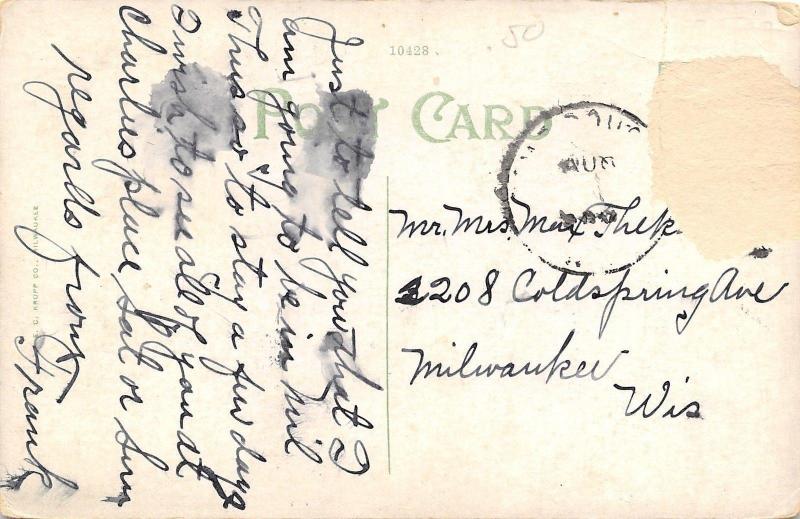 10428.
50
POST CARD
Just to tell you that I
am going to be in Mil
Thus so to stay a few days
I wish to see all of you at
Charlies place Sat or Sun
regards from
Frank
E. C. KROPP CO., MILWAUKEE
AUG
Mr. Mrs Max Thek
2208 Coldspring Ave
Milwaukee
Wis